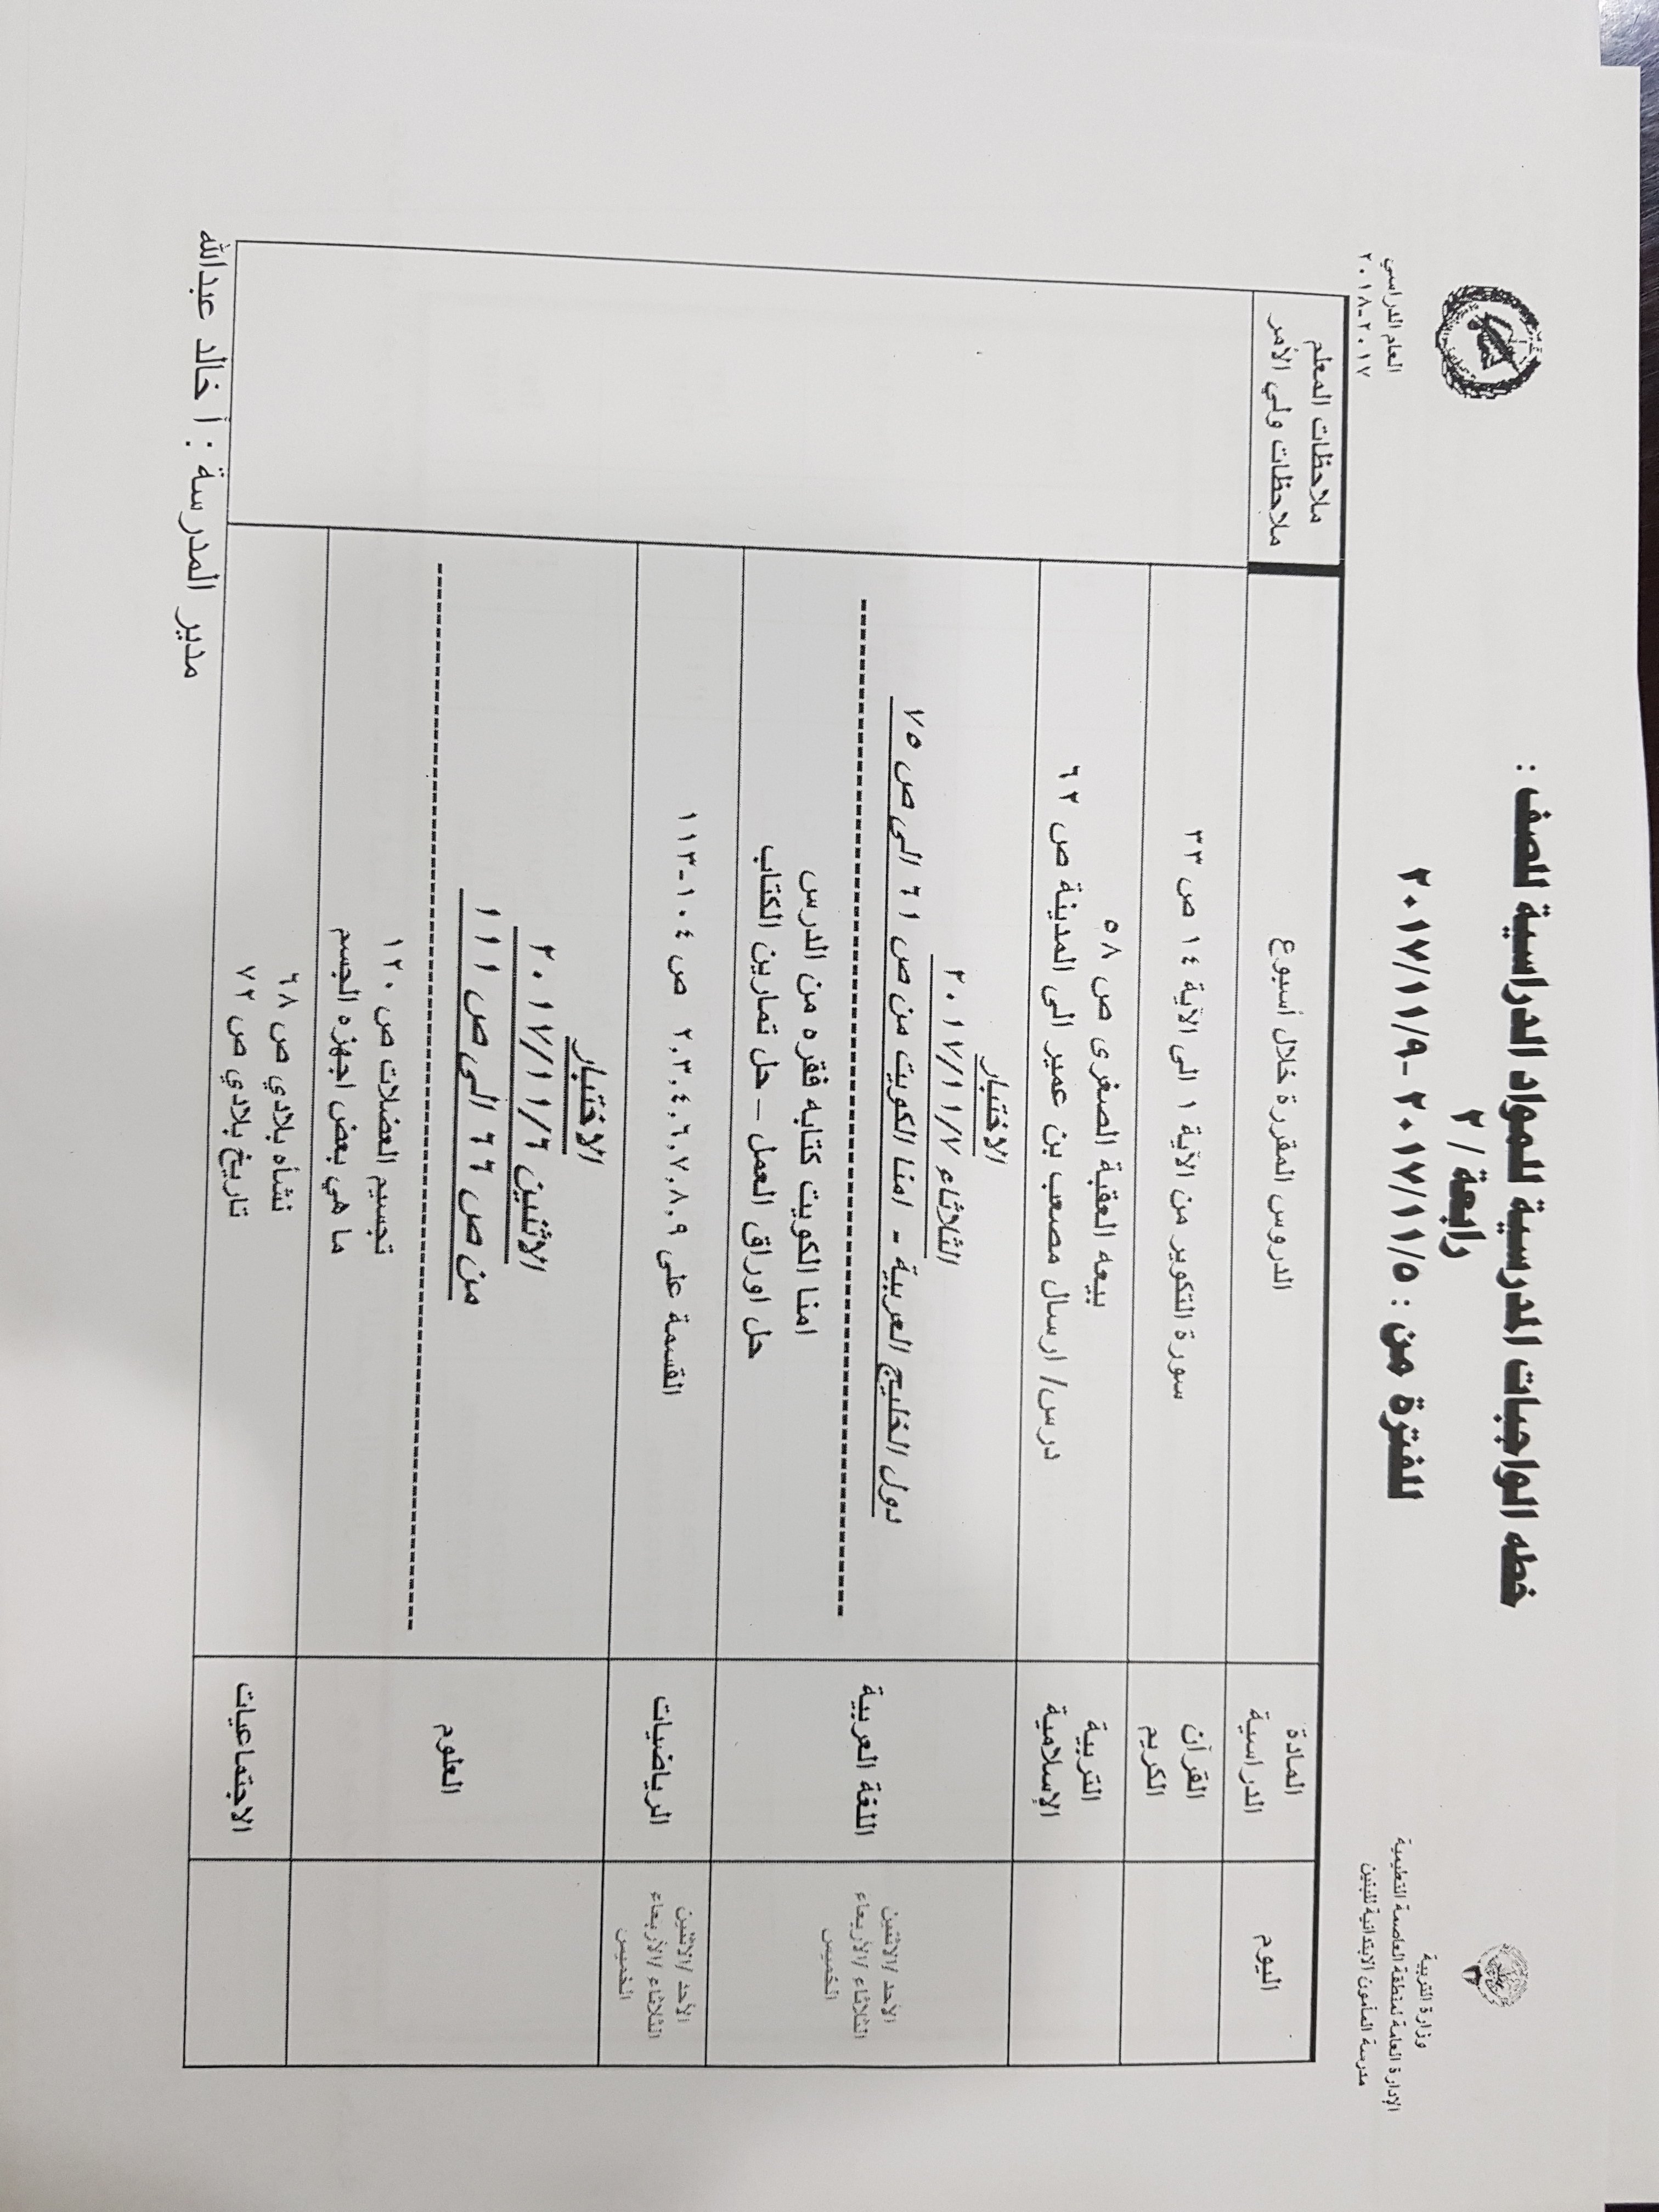 وزارة التربية
الإدارة العامة لمنطقة العاصمة التعليمية
مدرسة المأمون الابتدائية للبنين
خطه الواجبات المدرسية للمواد الدراسية للصف :
رابعة / ٢
للفترة من : ٢٠١٧/١١/٥ -٢٠١٧/١١/٩
العام الدراسي
٢٠١٧-٢٠١٨
اليوم
المادة
الدراسية
الدروس المقررة خلال أسبوع
ملاحظات المعلم
ملاحظات ولي الأمر
القرآن
الكريم
سورة التكوير من الآية ١ الى الآية ١٤ ص ٣٣
التربية
الإسلامية
بيعه العقبة الصغرى ص ٥٨
درس/ ارسال مصعب بن عمير الى المدينة ص ٦٢
الأحد /الاثنين
الثلاثاء /الأربعاء
الخميس
اللغة العربية
الاختبار
الثلاثاء ٢٠١٧/١١/٧
دول الخليج العربية - امنا الكويت من ص ٦١ الى ص ٧٥
امنا الكويت كتابه فقره من الدرس
حل اوراق العمل – حل تمارين الكتاب
الأحد /الاثنين
الثلاثاء /الأربعاء
الخميس
الرياضيات
القسمة على ٢,٣,٤,٦,٧,٨,٩ ص ١٠٤-١١٣
العلوم
الاختبار
الاثنين ٢٠١٧/١١/٦
من ص ٦٦ الى ص ١١١
تجسيم العضلات ص ١٢٠
ما هي بعض اجهزه الجسم
الاجتماعيات
نشأه بلادي ص ٦٨
تاريخ بلادي ص ٧٢
مدير المدرسة : أ خالد عبدالله